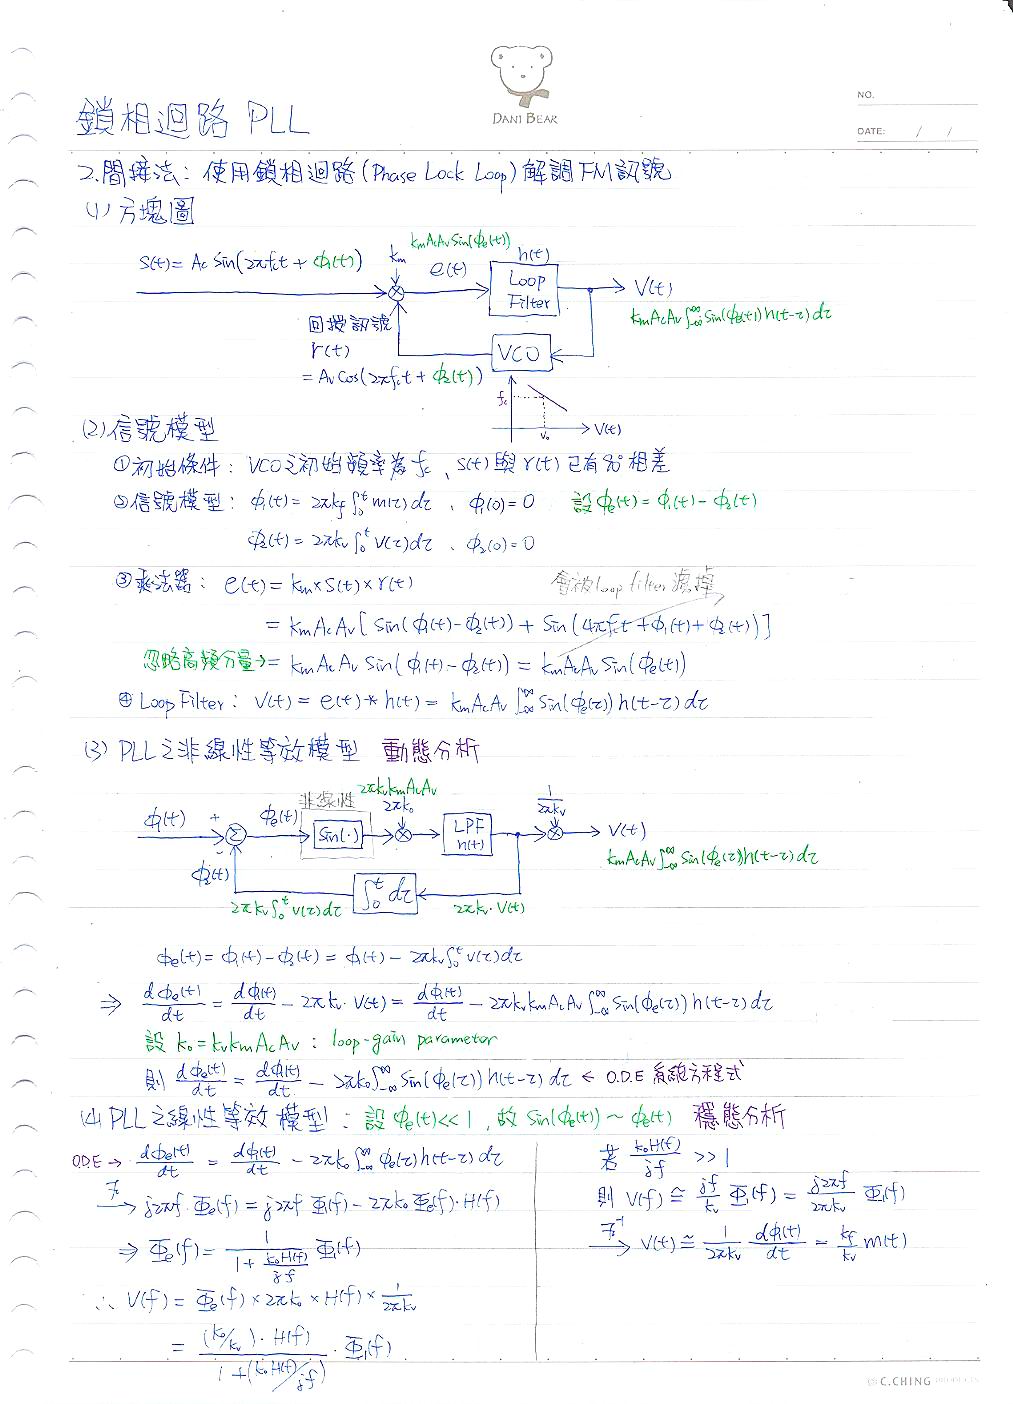 DANI BEAR
NO.
DATE: / /
鎖相迴路 PLL
2.間接法：使用鎖相迴路(Phase Lock Loop)解調FM訊號
(1) 方塊圖
kmAcAvSin(ϕe(t))
S(t)= Ac Sin(2πfct + ϕ1(t))
km
e(t)
h(t)
Loop Filter
V(t)
kmAcAv∫-∞^∞ Sin(ϕe(t)) h(t-τ) dτ
回授訊號
r(t)
= Av Cos(2πfct + ϕ2(t))
VCO
fc
V0
V(t)
(2) 信號模型
①初始條件：VCO之初始頻率為fc、S(t)與r(t)已有90°相差
②信號模型：ϕ1(t)= 2πkf∫0^t m(τ)dτ、ϕ1(0)= 0 設ϕe(t)= ϕ1(t)- ϕ2(t)
ϕ2(t)= 2πkv∫0^t V(τ)dτ、ϕ2(0)=0
③乘法器：e(t)= km×S(t)×r(t) 會被loop filter濾掉
= kmAcAv[ Sin(ϕ1(t)-ϕ2(t)) + Sin(4πfct+ϕ1(t)+ϕ2(t))]
忽略高頻分量→= kmAcAv Sin(ϕ1(t)-ϕ2(t)) = kmAcAv Sin(ϕe(t))
④Loop Filter：V(t)= e(t)*h(t)= kmAcAv∫-∞^∞ Sin(ϕe(τ)) h(t-τ) dτ
(3) PLL之非線性等效模型 動態分析
ϕ1(t)
+
Σ
-
ϕ2(t)
ϕe(t)
非線性
Sin(·)
2πkvkmAcAv
2πk0
LPF h(t)
1/2πkv
V(t)
kmAcAv∫-∞^∞ Sin(ϕe(τ))h(t-τ)dτ
∫0^t dτ
2πkv∫0^t V(τ)dτ
2πkv·V(t)
ϕe(t)= ϕ1(t)-ϕ2(t)= ϕ1(t)- 2πkv∫0^t V(τ)dτ
⇒ dϕe(t)/dt = dϕ1(t)/dt - 2πkv·V(t)= dϕ1(t)/dt - 2πkvkmAcAv∫-∞^∞ Sin(ϕe(τ)) h(t-τ)dτ
設 k0=kvkmAcAv：loop-gain parameter
則 dϕe(t)/dt = dϕ1(t)/dt - 2πk0∫-∞^∞ Sin(ϕe(τ)) h(t-τ)dτ ← O.D.E 系統方程式
(4) PLL之線性等效模型：設ϕe(t)<<1,故 Sin(ϕe(t)) ~ ϕe(t) 穩態分析
O.D.E→ dϕe(t)/dt = dϕ1(t)/dt - 2πk0∫-∞^∞ ϕe(τ)h(t-τ)dτ
F→ j2πf·Φe(f)= j2πf Φ1(f)- 2πk0Φe(f)·H(f)
⇒ Φe(f)= 1/(1+ k0H(f)/jf) Φ1(f)
∴ V(f)= Φe(f)×2πk0×H(f)× 1/2πkv
= (k0/kv)·H(f)/(1+(k0H(f)/jf)) · Φ1(f)
若 k0H(f)/jf >>1
則 V(f)≅ jf/kv Φ1(f)= j2πf/2πkv Φ1(f)
F⁻¹→ V(t)≅ 1/2πkv dϕ1(t)/dt = kf/kv m(t)
C.CHING